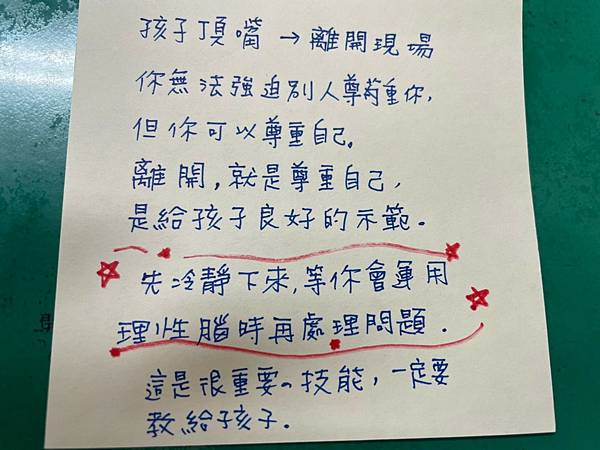 孩子頂嘴→離開現場
你無法強迫別人尊重你,
但你可以尊重自己。
離開,就是尊重自己,
是給孩子良好的示範。
先冷靜下來,等你會運用
理性腦時再處理問題.
這是很重要的技能,一定要
教給孩子.